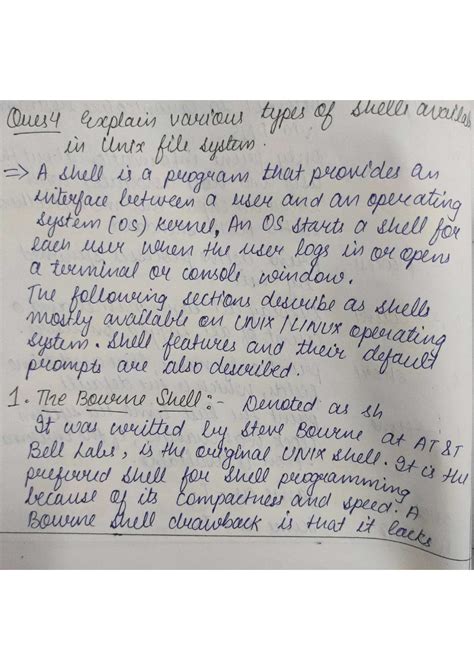 Ques4 Explain various types of shells availab
in Unix file system.
=> A shell is a program that provides an
interface between a user and an operating
system (OS) kernel, An OS starts a shell for
each user when the user logs in or opens
a terminal or console window.
The following sections describe as shells
mostly available on UNIX / LINUX operating
system. Shell features and their default
prompts are also described.
1. The Bourne Shell :- Denoted as sh
It was writted by Steve Bourne at AT&T
Bell Labs, is the original UNIX shell. It is the
preferred shell for shell programming
because of its compactness and speed. A
Bourne shell drawback is that it lacks